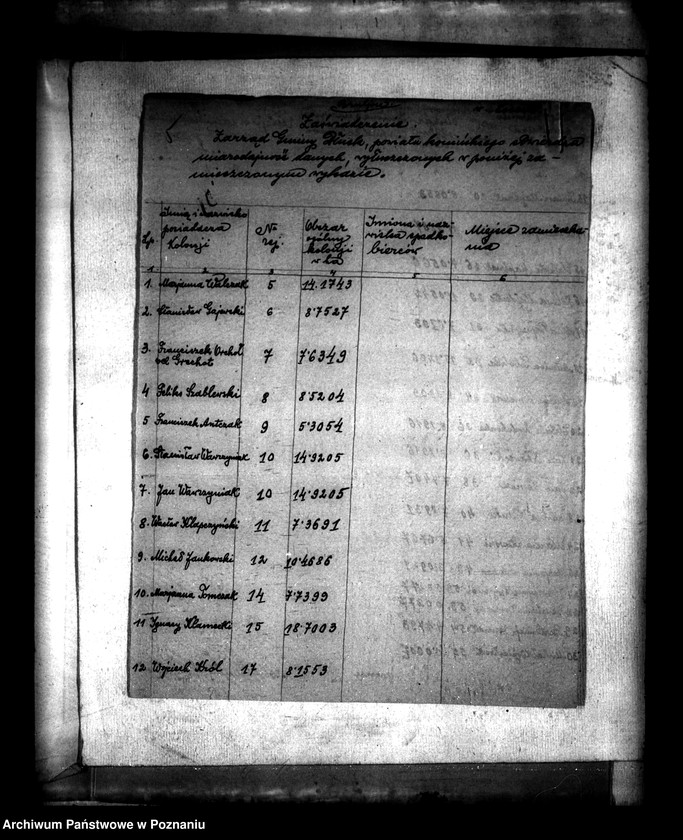 Zaświadczenie.
Zarząd Gminy powiatu konińskiego stwierdza
miarodajność danych, wyłuszczonych w poniżej za-
mieszczonym wykazie.
Lp. Imię i nazwisko posiadacza kolonji № rej. Obszar ogólny kolonji w ha Imiona i nazwiska spadkobierców Miejsce zamieszkania
1. 2 3 4 5 6
1. Marjanna Walczak 5 14.1743
2. Stanisław Gajewski 6 8.7527
3. Franciszek Orchot 7 7.6349
vel Grochot
4 Feliks Szablewski 8 8.5204
5 Franciszek Antczak 9 5.3054
6. Stanisław Wawrzyniak 10 14.9205
7. Jan Wawrzyniak 10 14.9205
8. Wacław Kłapczyński 11 7.3691
9. Michał Jankowski 12 10.4686
10. Marjanna Tomczak 14 7.7399
11 Ignacy 15 18.7003
12. Wojciech Król 17 8.1553
Archiwum Państwowe w Poznaniu